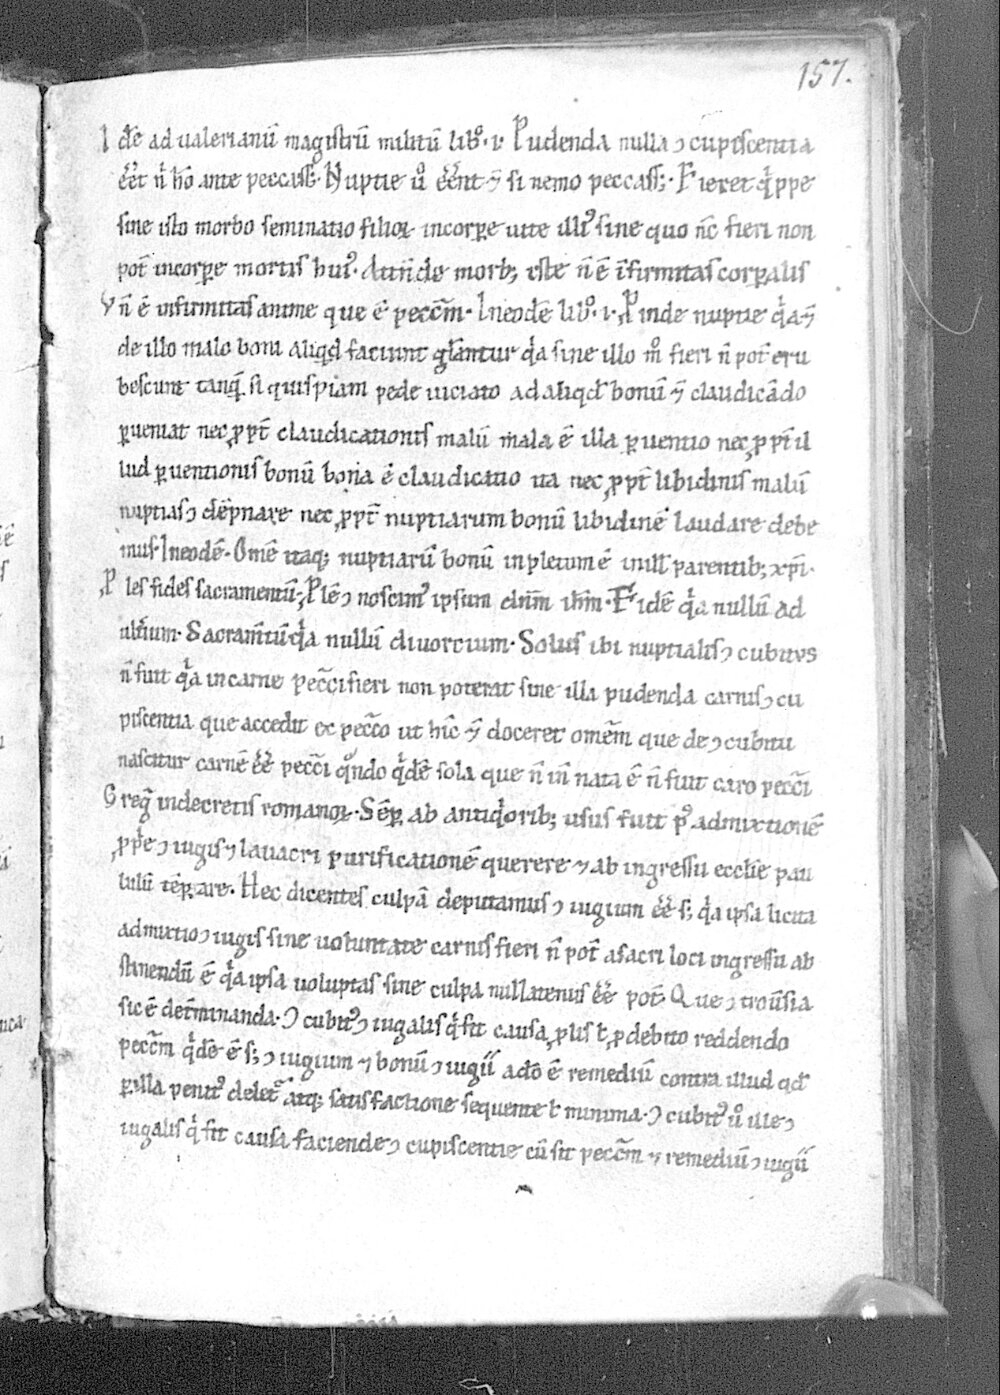 157.
I dē ad ualerianū magistrū militū libº·i· Pudenda nulla ↄcupiscentia
eēt n̄ hō ante peccass;· Nuptie uº eēnt ⁊ si nemo peccass;· Fieret q̇ppe
sine isto morbo seminatio filioꝝ incorꝑe uite illi᷒ sine quo nc̄ fieri non
pot̄ incorꝑe mortis hui᷒· Aut̄ inde morb; iste n̄ ē īfirmitas corꝑalis
ū n̄ ē infirmitas anime que ē pecc̄m· In eodē libº·i· Proinde nuptie q̇a ⁊
de illo malo boni aliqd̄ faciunt gl̄antur q̇a sine illo mº fieri n̄ pot̄ eru
bescunt tanq̄ si quispiam pede uiciato ad aliqd̄ bonū ⁊ claudicādo
ꝑueniat nec ꝓpt̄ claudicationis malū mala ē illa ꝑuentio nec ꝓpt̄ il
lud ꝑuentionis bonū bona ē claudicatio ita nec ꝓpt̄ libidinis malū
nuptias ↄdēpnare nec ꝓpt̄ nuptiarum bonū libidinē laudare debe
mus· In eodē· Omē itaq; nuptiarū bonū inpletum ē in ill᷒ parentib; xp̄i·
Ꝓles fides sacramentū; Ꝓlē ↄnoscim᷒ ipsum dnm̄ ihm̄· Fidē q̇a nullū ad
ult̄ium· Sacram̄tū q̇a nullū diuorcium· Solus ibi nuptialis ↄcubitus
n̄ fuit q̇a in carne pecc̄i fieri non poterat sine illa pudenda carnis ↄcu
piscentia que accedit ex pecc̄o ut hīc ⁊ doceret omēm que de ↄcubitu
nascitur carnē eē̄ pecc̄i qºndo q̇dē sola que n̄ in̄ nata ē n̄ fuit caro pecc̄i
Greḡ in decretis romanoꝝ· Sēꝑ ab antiq̇orib; usus fuit p᷒ admixtionē
ꝓṗe ↄiugis ⁊ lauacri purificationē querere ⁊ ab ingressu eccl̄ie pau
lulū tēꝑare· Hec dicentes culpā deputamus ↄiugium eē̄ s; q̇a ipsa licita
admixtio ↄiugis sine uoluntate carnis fieri n̄ pot̄ a sacri loci ingressu ab
stinendū ē q̇a ipsa uoluptas sine culpa nullatenus eē̄ pot̄· Que ↄtrou̅sia
sic ē det̄minanda· Ↄcubit᷒ ↄiugalis q̇ fit causa ꝓlis ł ꝓ debito reddendo
pecc̄m q̇dē ē s; ↄiugium ⁊ bonū ↄiugii adō ē remediū contra illud qd̄
ꝑ illa penit᷒ delet᷑ atq; satisfactione sequente ł minima· Ↄcubit᷒ uº ille ↄ
iugalis q̇ fit causa faciende ↄcupiscentie cū sit pecc̄m ⁊ remediū ↄiugii